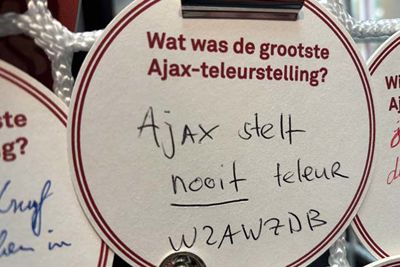 Wat was de grootste
Ajax-teleurstelling?
Ajax stelt
nooit teleur
WZAWZDB
ste
g?
en in
Wi
Aj